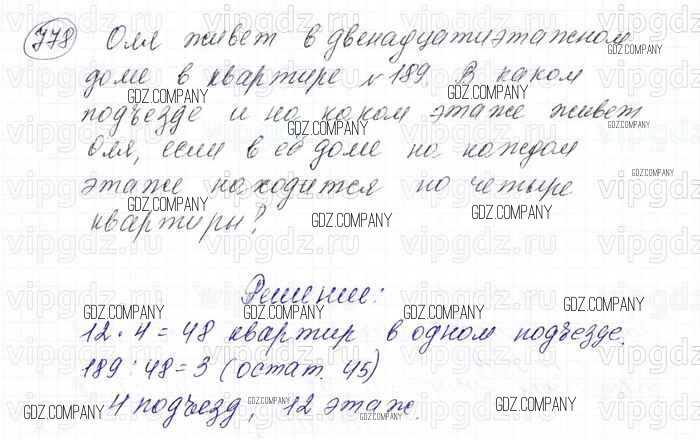 778 Оля живет в двенадцатиэтажном
доме в квартире №189. В каком
подъезде и на каком этаже живет
Оля, если в её доме на каждом
этаже находится по четыре
квартиры?
Решение:
12 · 4 = 48 квартир в одном подъезде.
189 : 48 = 3 (остат. 45)
4 подъезд, 12 этаж.
GDZ.COMPANY
vipgdz.ru